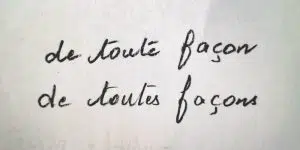 de toute façon
de toutes façons